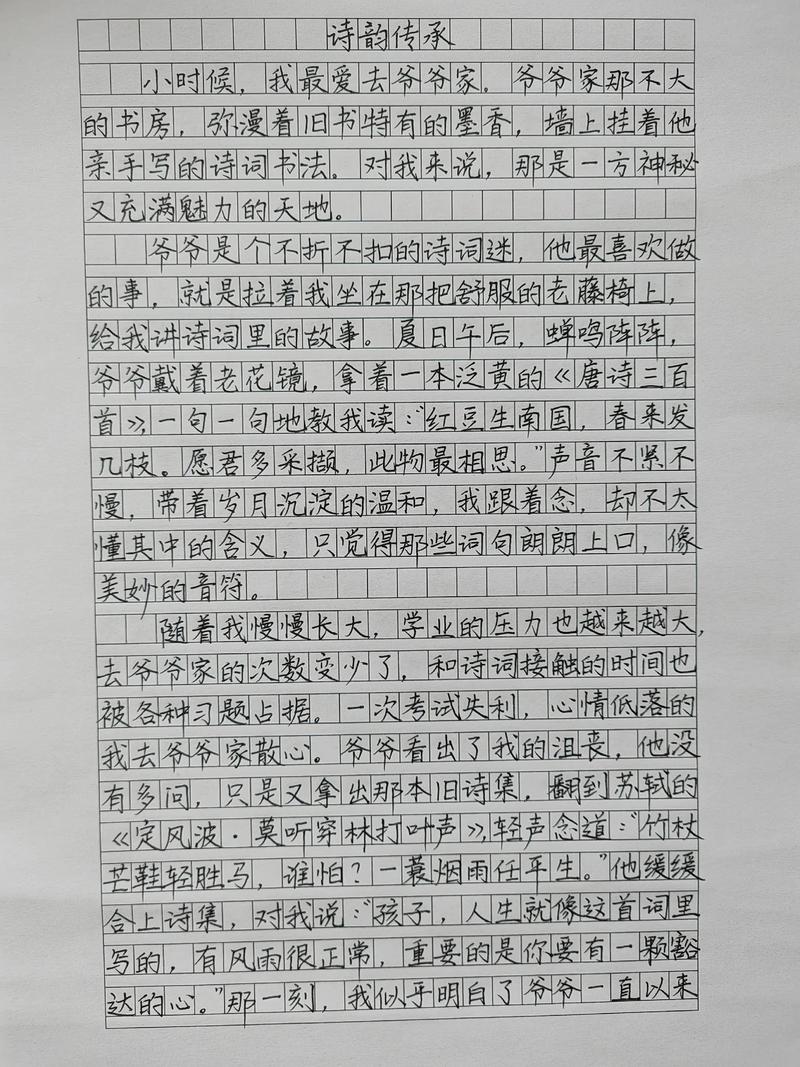 诗韵传承
小时候，我最爱去爷爷家。爷爷家那不大
的书房，弥漫着旧书特有的墨香，墙上挂着他
亲手写的诗词书法。对我来说，那是一方神秘
又充满魅力的天地。
爷爷是个不折不扣的诗词迷，他最喜欢做
的事，就是拉着我坐在那把舒服的老藤椅上，
给我讲诗词里的故事。夏日午后，蝉鸣阵阵，
爷爷戴着老花镜，拿着一本泛黄的《唐诗三百
首》，一句一句地教我读：“红豆生南国，春来发
几枝。愿君多采撷，此物最相思。”声音不紧不
慢，带着岁月沉淀的温和，我跟着念，却不太
懂其中的含义，只觉得那些词句朗朗上口，像
美妙的音符。
随着我慢慢长大，学业的压力也越来越大，
去爷爷家的次数变少了，和诗词接触的时间也
被各种习题占据。一次考试失利，心情低落的
我去爷爷家散心。爷爷看出了我的沮丧，他没
有多问，只是又拿出那本旧诗集，翻到苏轼的
《定风波·莫听穿林打叶声》，轻声念道：“竹杖
芒鞋轻胜马，谁怕？一蓑烟雨任平生。”他缓缓
合上诗集，对我说：“孩子，人生就像这首词里
写的，有风雨很正常，重要的是你要有一颗豁
达的心。”那一刻，我似乎明白了爷爷一直以来